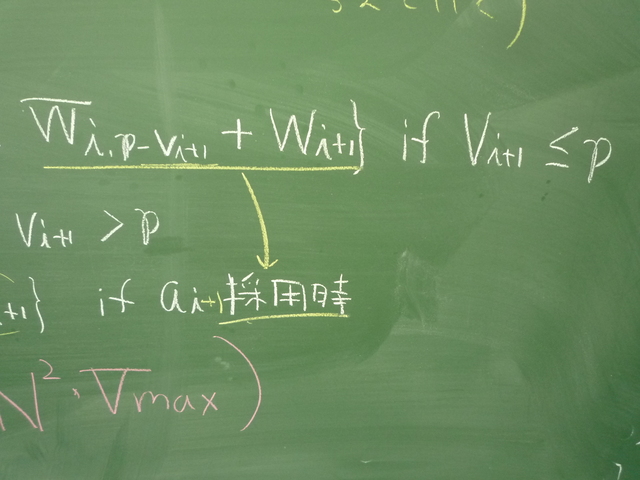 W̅i,p-vi+1 + Wi+1} if Vi+1 ≤ p
Vi+1 > p
i+1} if ai+1採用時
N²·Vmax)